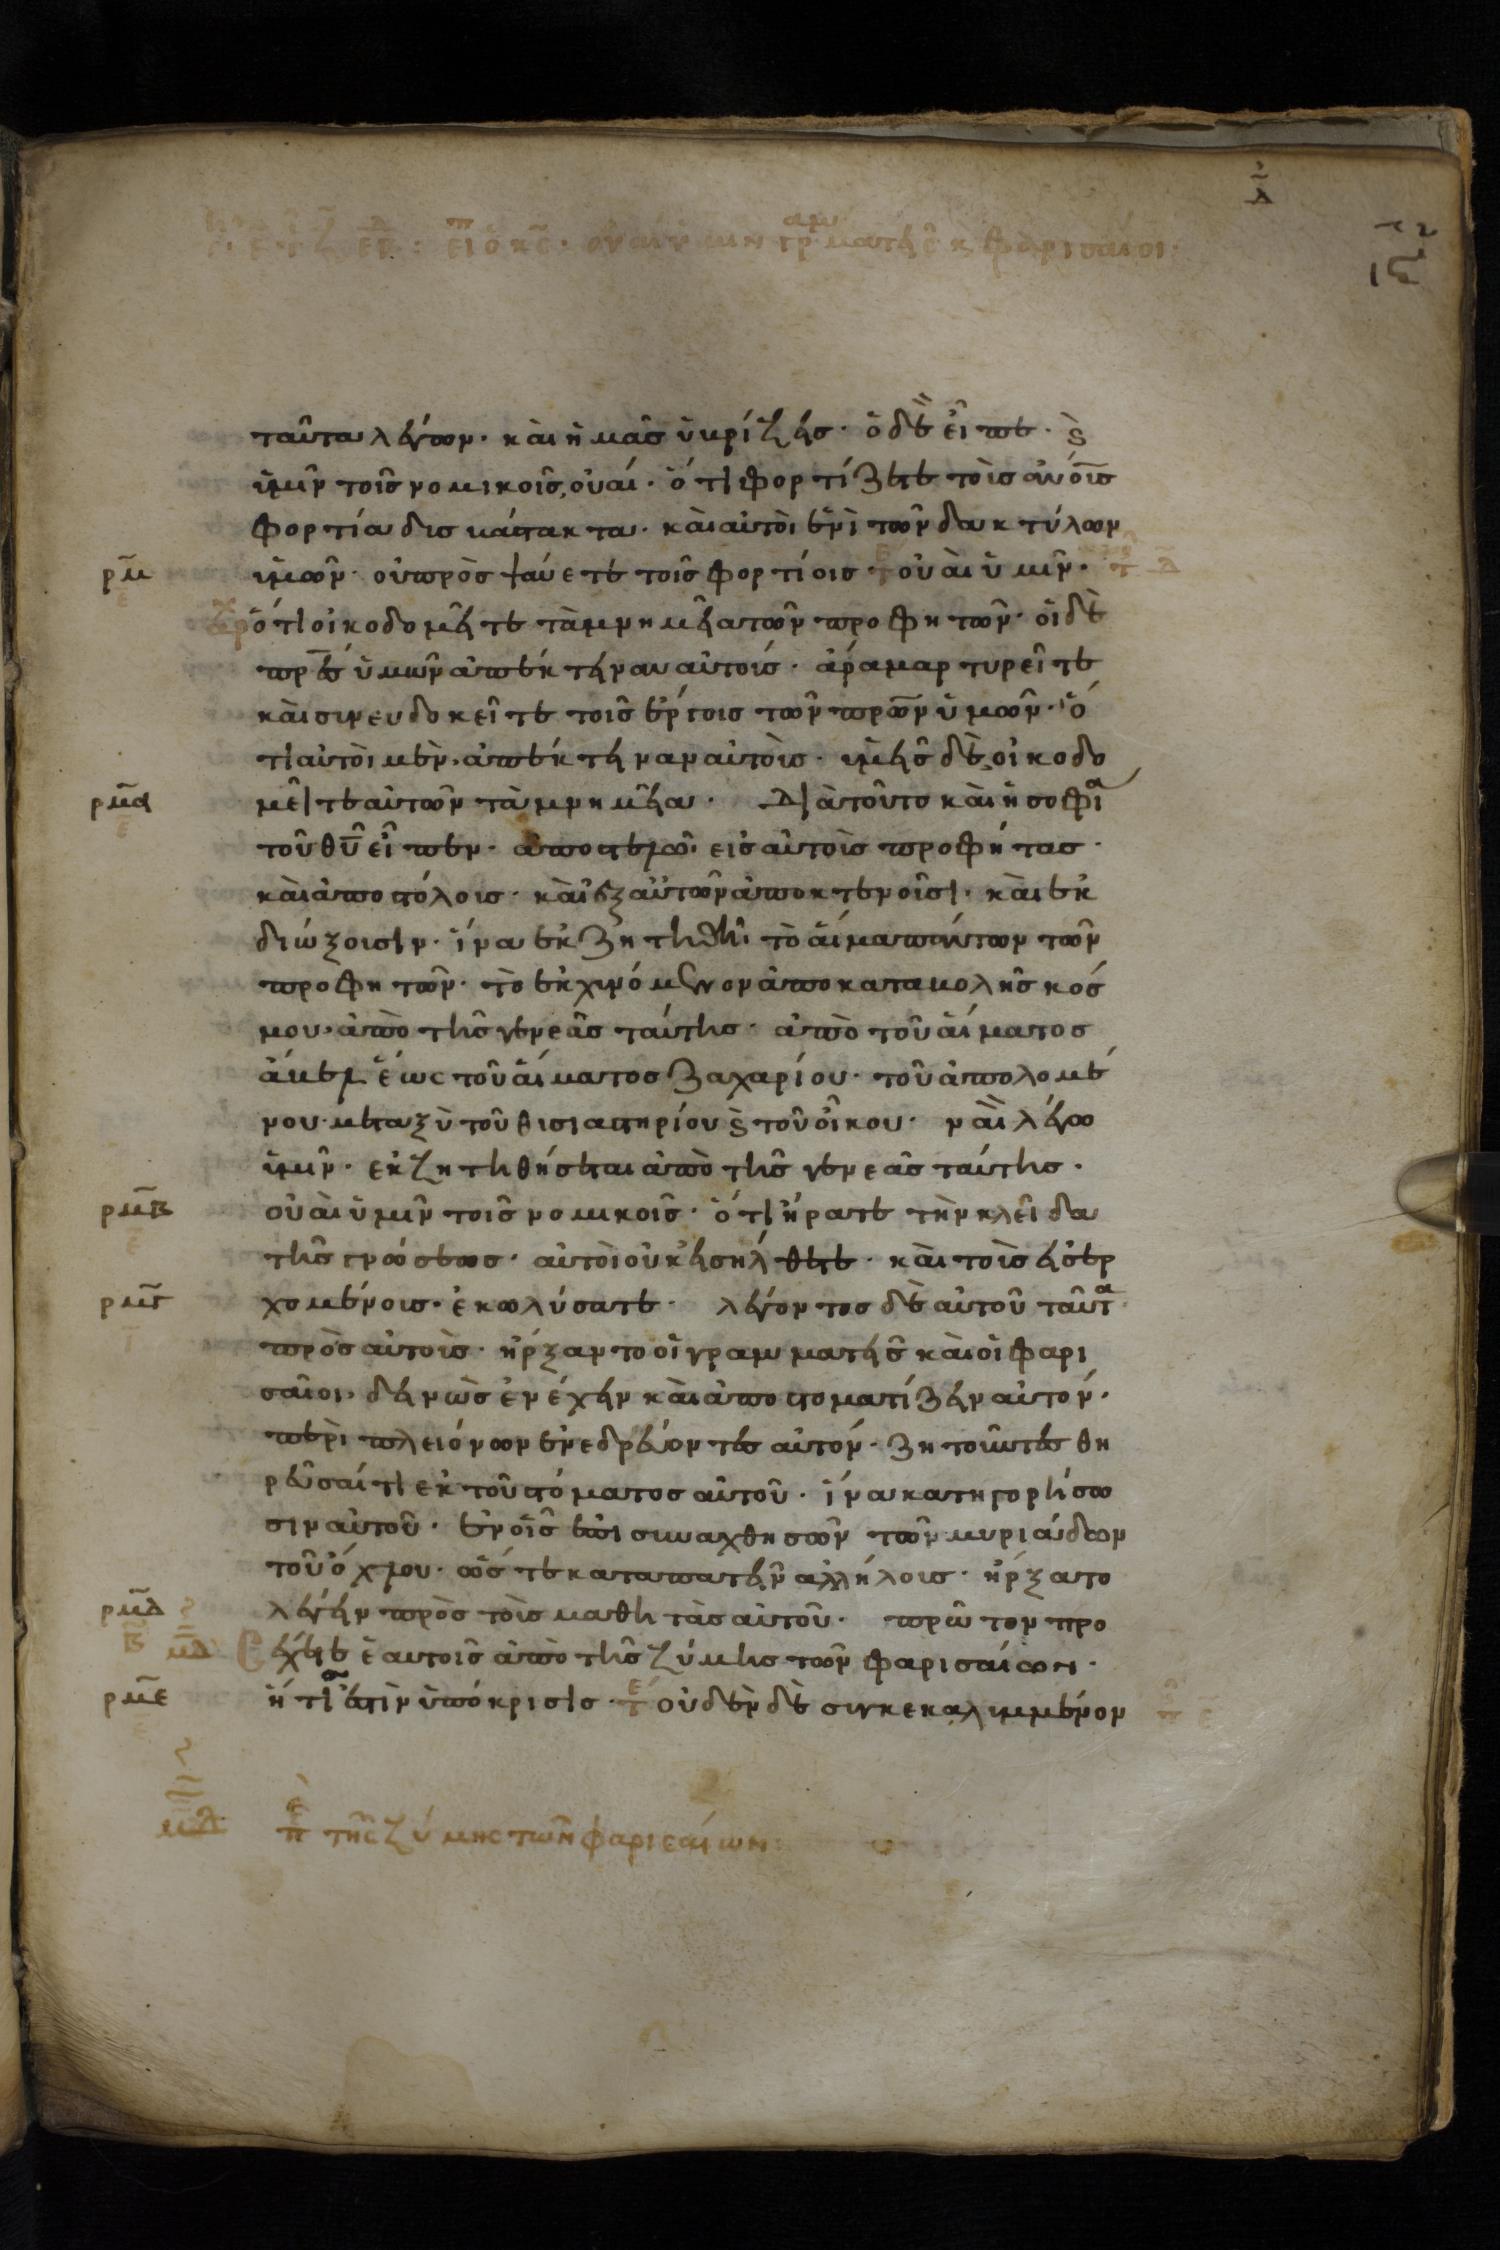 ταῦτα λέγων· καὶ ἡμᾶς ὑβρίζεις· ὁ δὲ εἶπε· ϗ
ὑμῖν τοῖς νομικοῖς, οὐαί· ὅτι φορτίζετε τοὶς ἀν̅οις
φορτία δισβάστακτα· καὶ αὐτοὶ ἑνὶ τῶν δακτύλων
ὑμῶν· οὐ προσψαύετε τοῖς φορτίοις· οὐαὶ ὑμῖν·
ρμ
ὅτι οἰκοδομεῖτε τὰ μνημεῖα τῶν προφητῶν· οἱ δὲ
πρ̅ες ὑμῶν ἀπέκτειναν αὐτοίς· ἄρα μαρτυρεῖτε
καὶ σινευδοκεῖτε τοῖς ἔργοις τῶν πρ̅ων ὑμῶν· ὅ
τι αὐτοὶ μὲν, ἀπέκτειναν αὐτοὶς· ὑμεῖς δὲ, οἰκοδο
ρμα
μεῖτε αὐτῶν τὰ μνημεῖα· Διὰ τοῦτο καὶ ἡ σοφία
τοῦ θυ̅ εἶπεν· ἀποστελῶ εἰς αὐτοὶς προφήτας·
καὶ ἀποστόλοις· καὶ ἐξ αὐτῶν ἀποκτενοῦσι· καὶ ἐκ
διώξουσιν· ἵνα ἐκζητηθῆ τὸ αἷμα πάντων τῶν
προφητῶν· τὸ ἐκχυνόμενον ἀπο καταβολῆς κόσ
μου, ἀπὸ τῆς γενεᾶς ταύτης· ἀπὸ τοῦ αἵματος
ἄβελ ἕως τοῦ αἵματος Ζαχαρίου· τοῦ ἀπολομέ
νου· μεταξὺ τοῦ θισιαστηρίου ϗ τοῦ οἴκου· ναὶ λέγω
ὑμῖν· εκζητηθήσεται ἀπὸ τῆς γενεᾶς ταύτης·
ρμβ
οὐαὶ ὑμῖν τοῖς νομικοῖς· ὅτι ἤρατε τὴν κλεῖδα
τῆς γνώσεως· αὐτοὶ οὐκ εἰσήλθετε· καὶ τοὶς εἰσερ
ρμγ
χομένοις· ἐκωλύσατε· λέγοντος δὲ αὐτοῦ ταῦτα
πρὸς αὐτοὶς· ἤρξαντο οἱ γραμματεῖς καὶ οἱ φαρι
σαῖοι, δεινὼς ἐνέχειν καὶ ἀποστοματίζειν αὐτον·
περὶ πλειόνων ἐνεδρεύοντες αὐτον· ζητοῦντές θη
ρεῦσαί τι εκ τοῦ στόματος αὐτοῦ· ἵνα κατηγορήσω
σιν αὐτοῦ· ἐν οἷς ἐπισυναχθησῶν τῶν μυριάδων
τοῦ ὄχλου· ὥστε καταπατεῖν αλλήλοις· ἤρξατο
ρμδ
λέγειν πρὸς τοὶς μαθητὰς αὐτοῦ· πρῶτον προ
μδ
σέχετε ἑαυτοῖς ἀπὸ τῆς ζύμης τῶν φαρισαίων·
ρμε
ἥτις ἐστὶν ὑπόκρισις· οὐδὲν δὲ συγκεκαλυμμένον
μδ
π τῆς ζύμης τῶν φαρισαίων